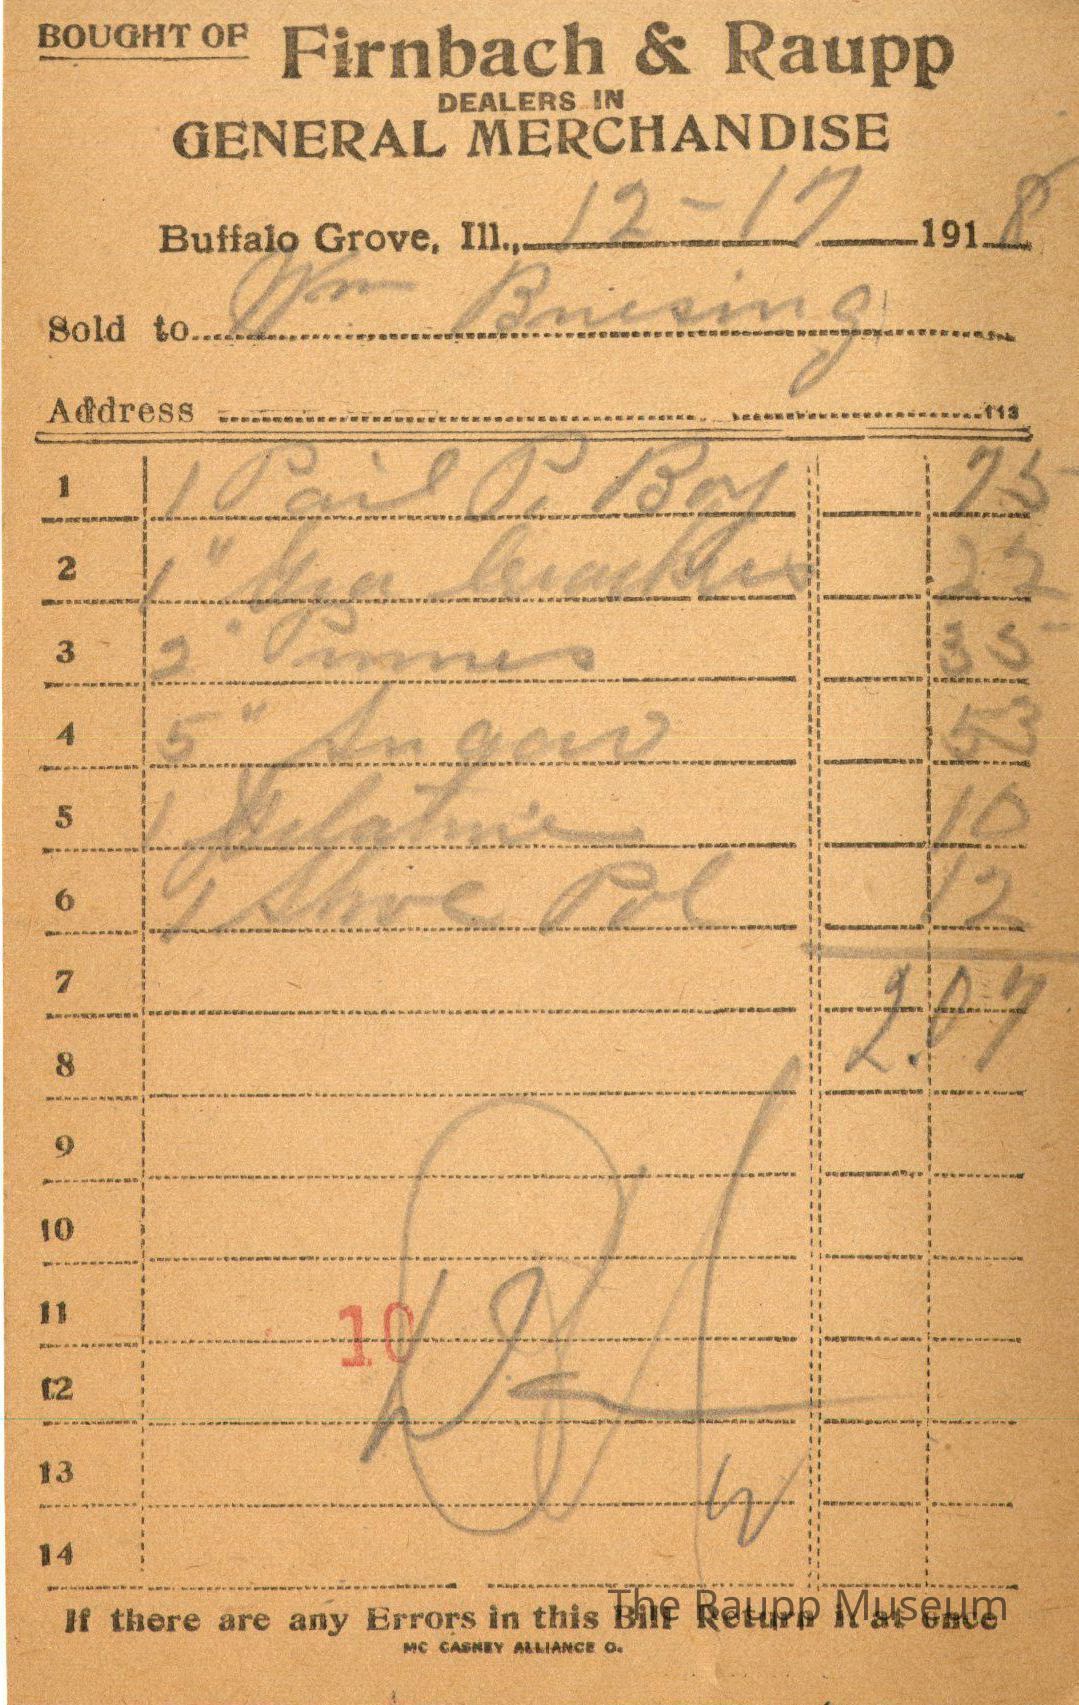 BOUGHT OF Firnbach & Raupp
DEALERS IN
GENERAL MERCHANDISE
Buffalo Grove, Ill., 12-17 1918
Sold to Wm Buesing
Address 113
1 1 Pail P. Boy 75
2 1 " Crackers 22
3 2 " Prunes 35
4 5 " Sugar 53
5 1 Gelatine 10
6 1 Shoe Pol 12
7 2.07
8
9
10
11
10
12
13
14
If there are any Errors in this Bill Return it at once
The Raupp Museum
MC CASKEY ALLIANCE O.